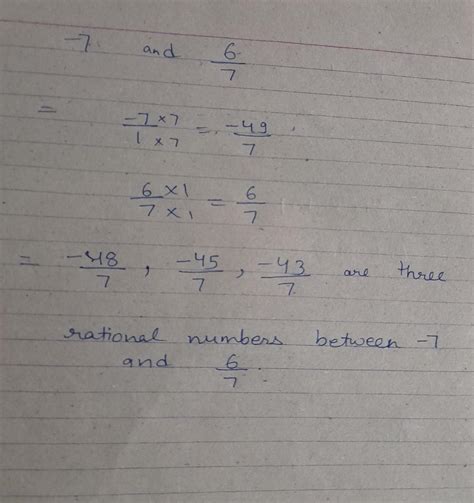 -7 and 6/7
= -7 × 7 / 1 × 7 = -49/7
6 × 1 / 7 × 1 = 6/7
= -48/7, -45/7, -43/7 are three
rational numbers between -7
and 6/7.